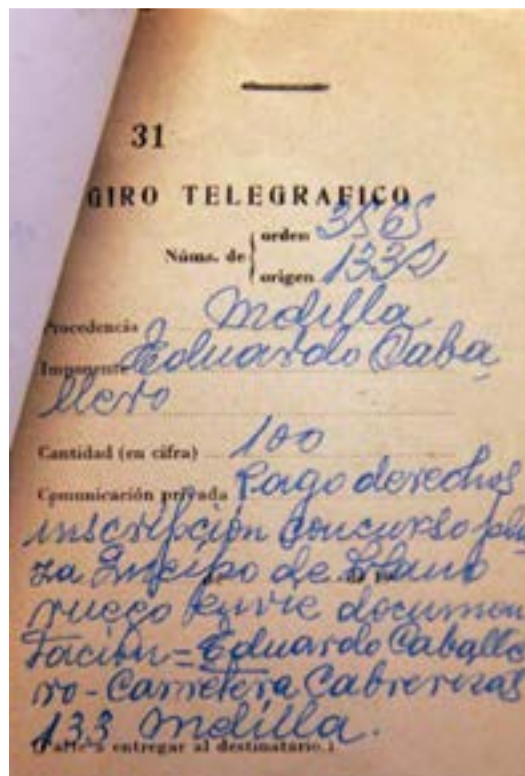 31
GIRO TELEGRAFICO
orden 3565
Núms. de
origen 1332
Procedencia Melilla
Imponente Eduardo Caba
llero
Cantidad (en cifra) 100
Comunicación privada Pago derechos
inscripción concurso pla
za de
ruego envie documen
tación = Eduardo Caballe
ro - Carretera Cabrerizas
133 Melilla.
a entregar al destinatario.)